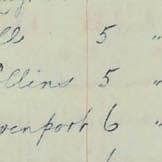 ll 5 "
ollins 5 "
venport 6 "